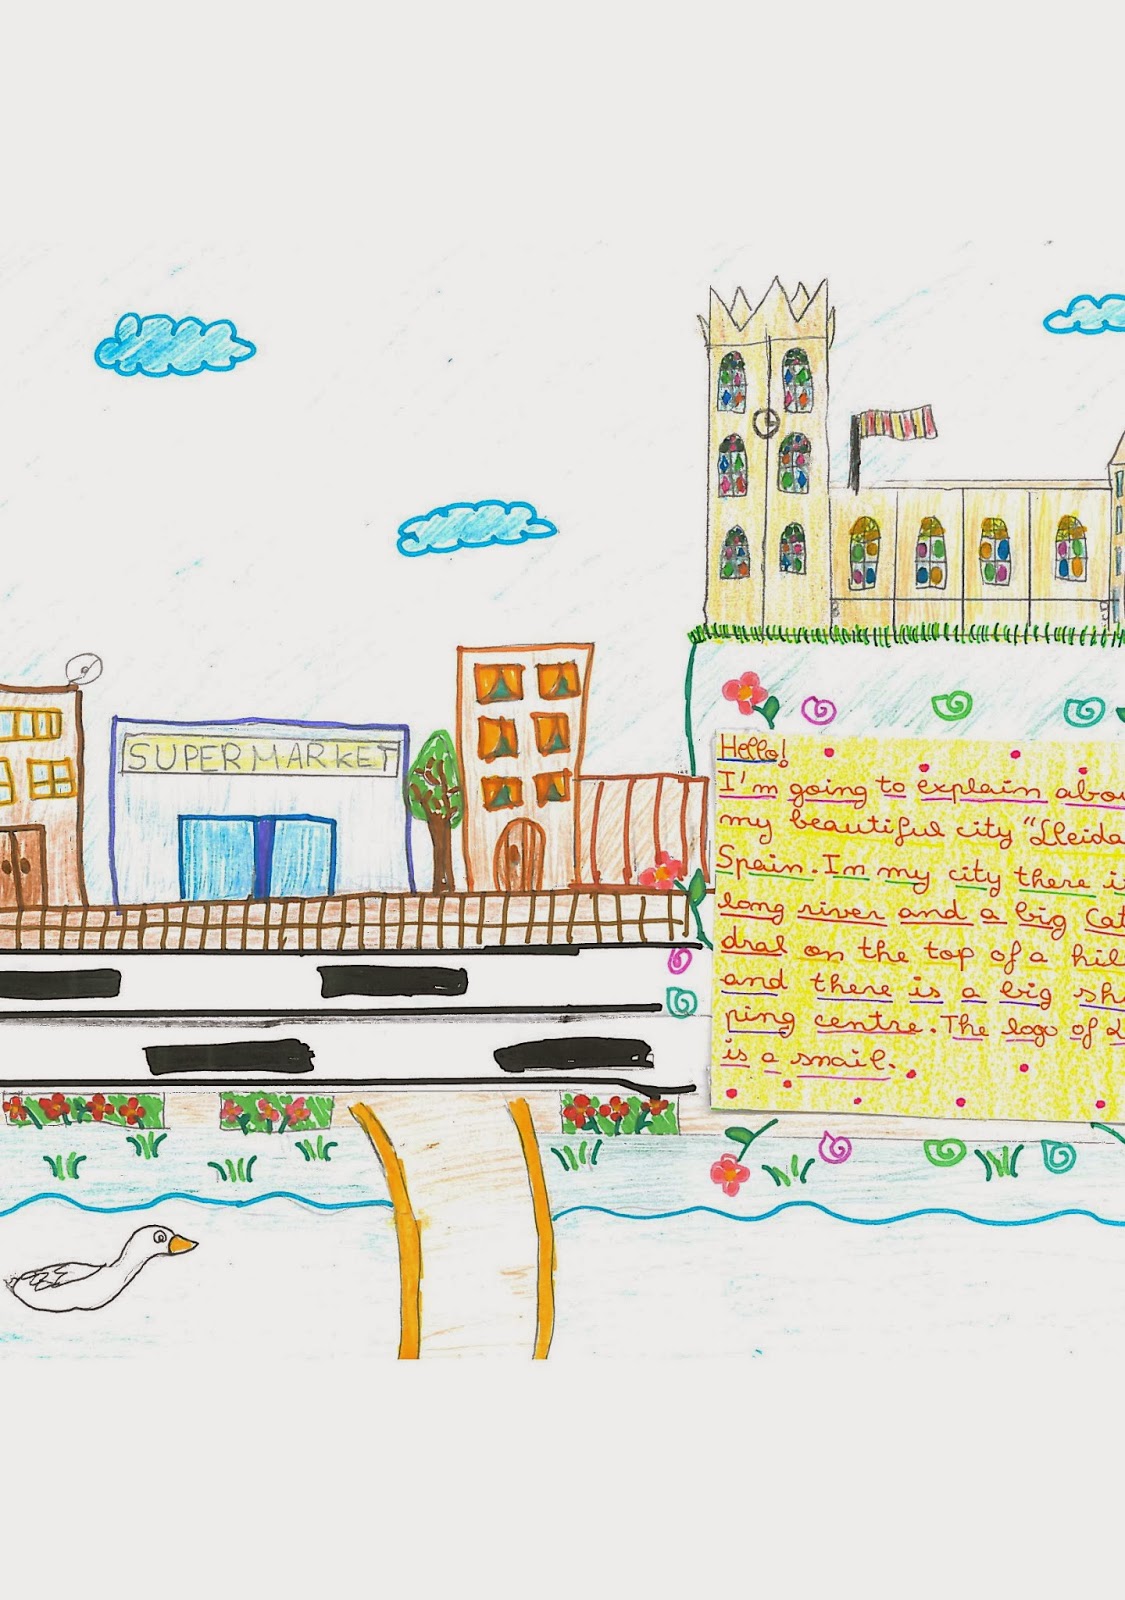 SUPERMARKET
Hello!
I'm going to explain abou
my beautiful city "Lleida
Spain. In my city there i
long river and a big Cat
dral on the top of a hil
and there is a big sh
ping centre. The logo of
is a snail.